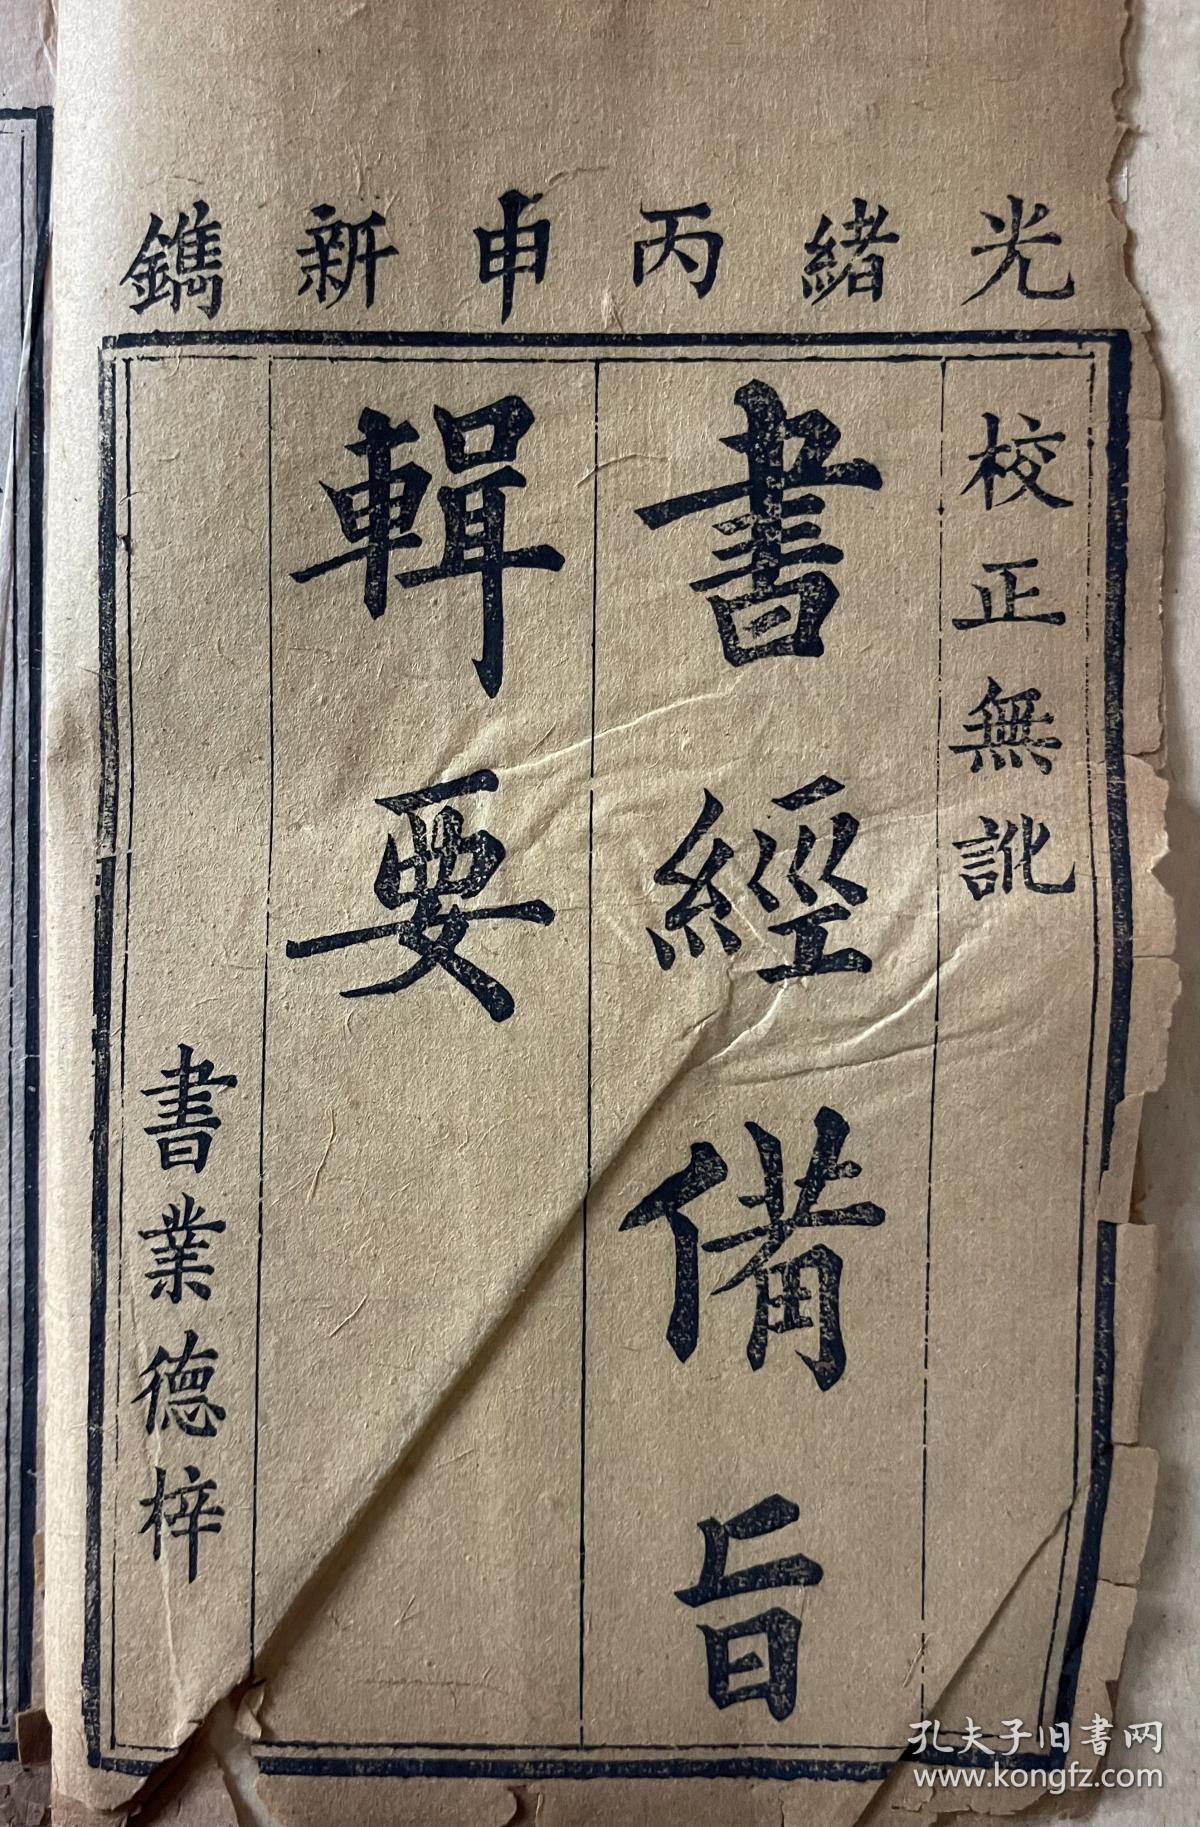 光緒丙申新鐫
校正無訛
書經備旨
輯要
書業德梓
孔夫子旧書网
www.kongfz.com